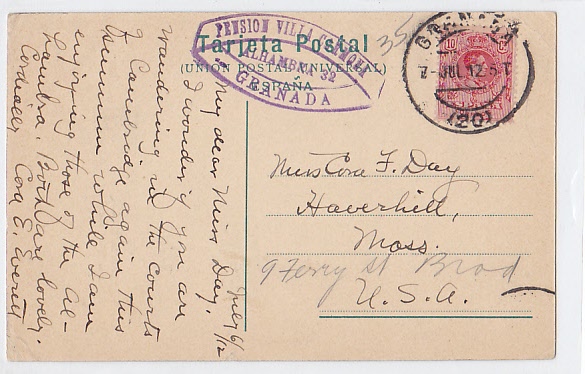 Tarjeta Postal
(UNIÓN POSTAL UNIVERSAL)
ESPAÑA
PENSION VILLA CARMONA
ALHAMBRA 32
GRANADA
GRANADA
7-JUL.12.5T
(20)
10
July 6/12
My dear Miss Day,
I wonder if you are
wandering in the courts
of Cambridge again this
summer while I am
enjoying those of the Al-
hambra. Both are lovely.
Cordially
Cora E. Everett
Miss Cora F. Day
Haverhill,
Mass.
9 Ferry St Brad
U.S.A.